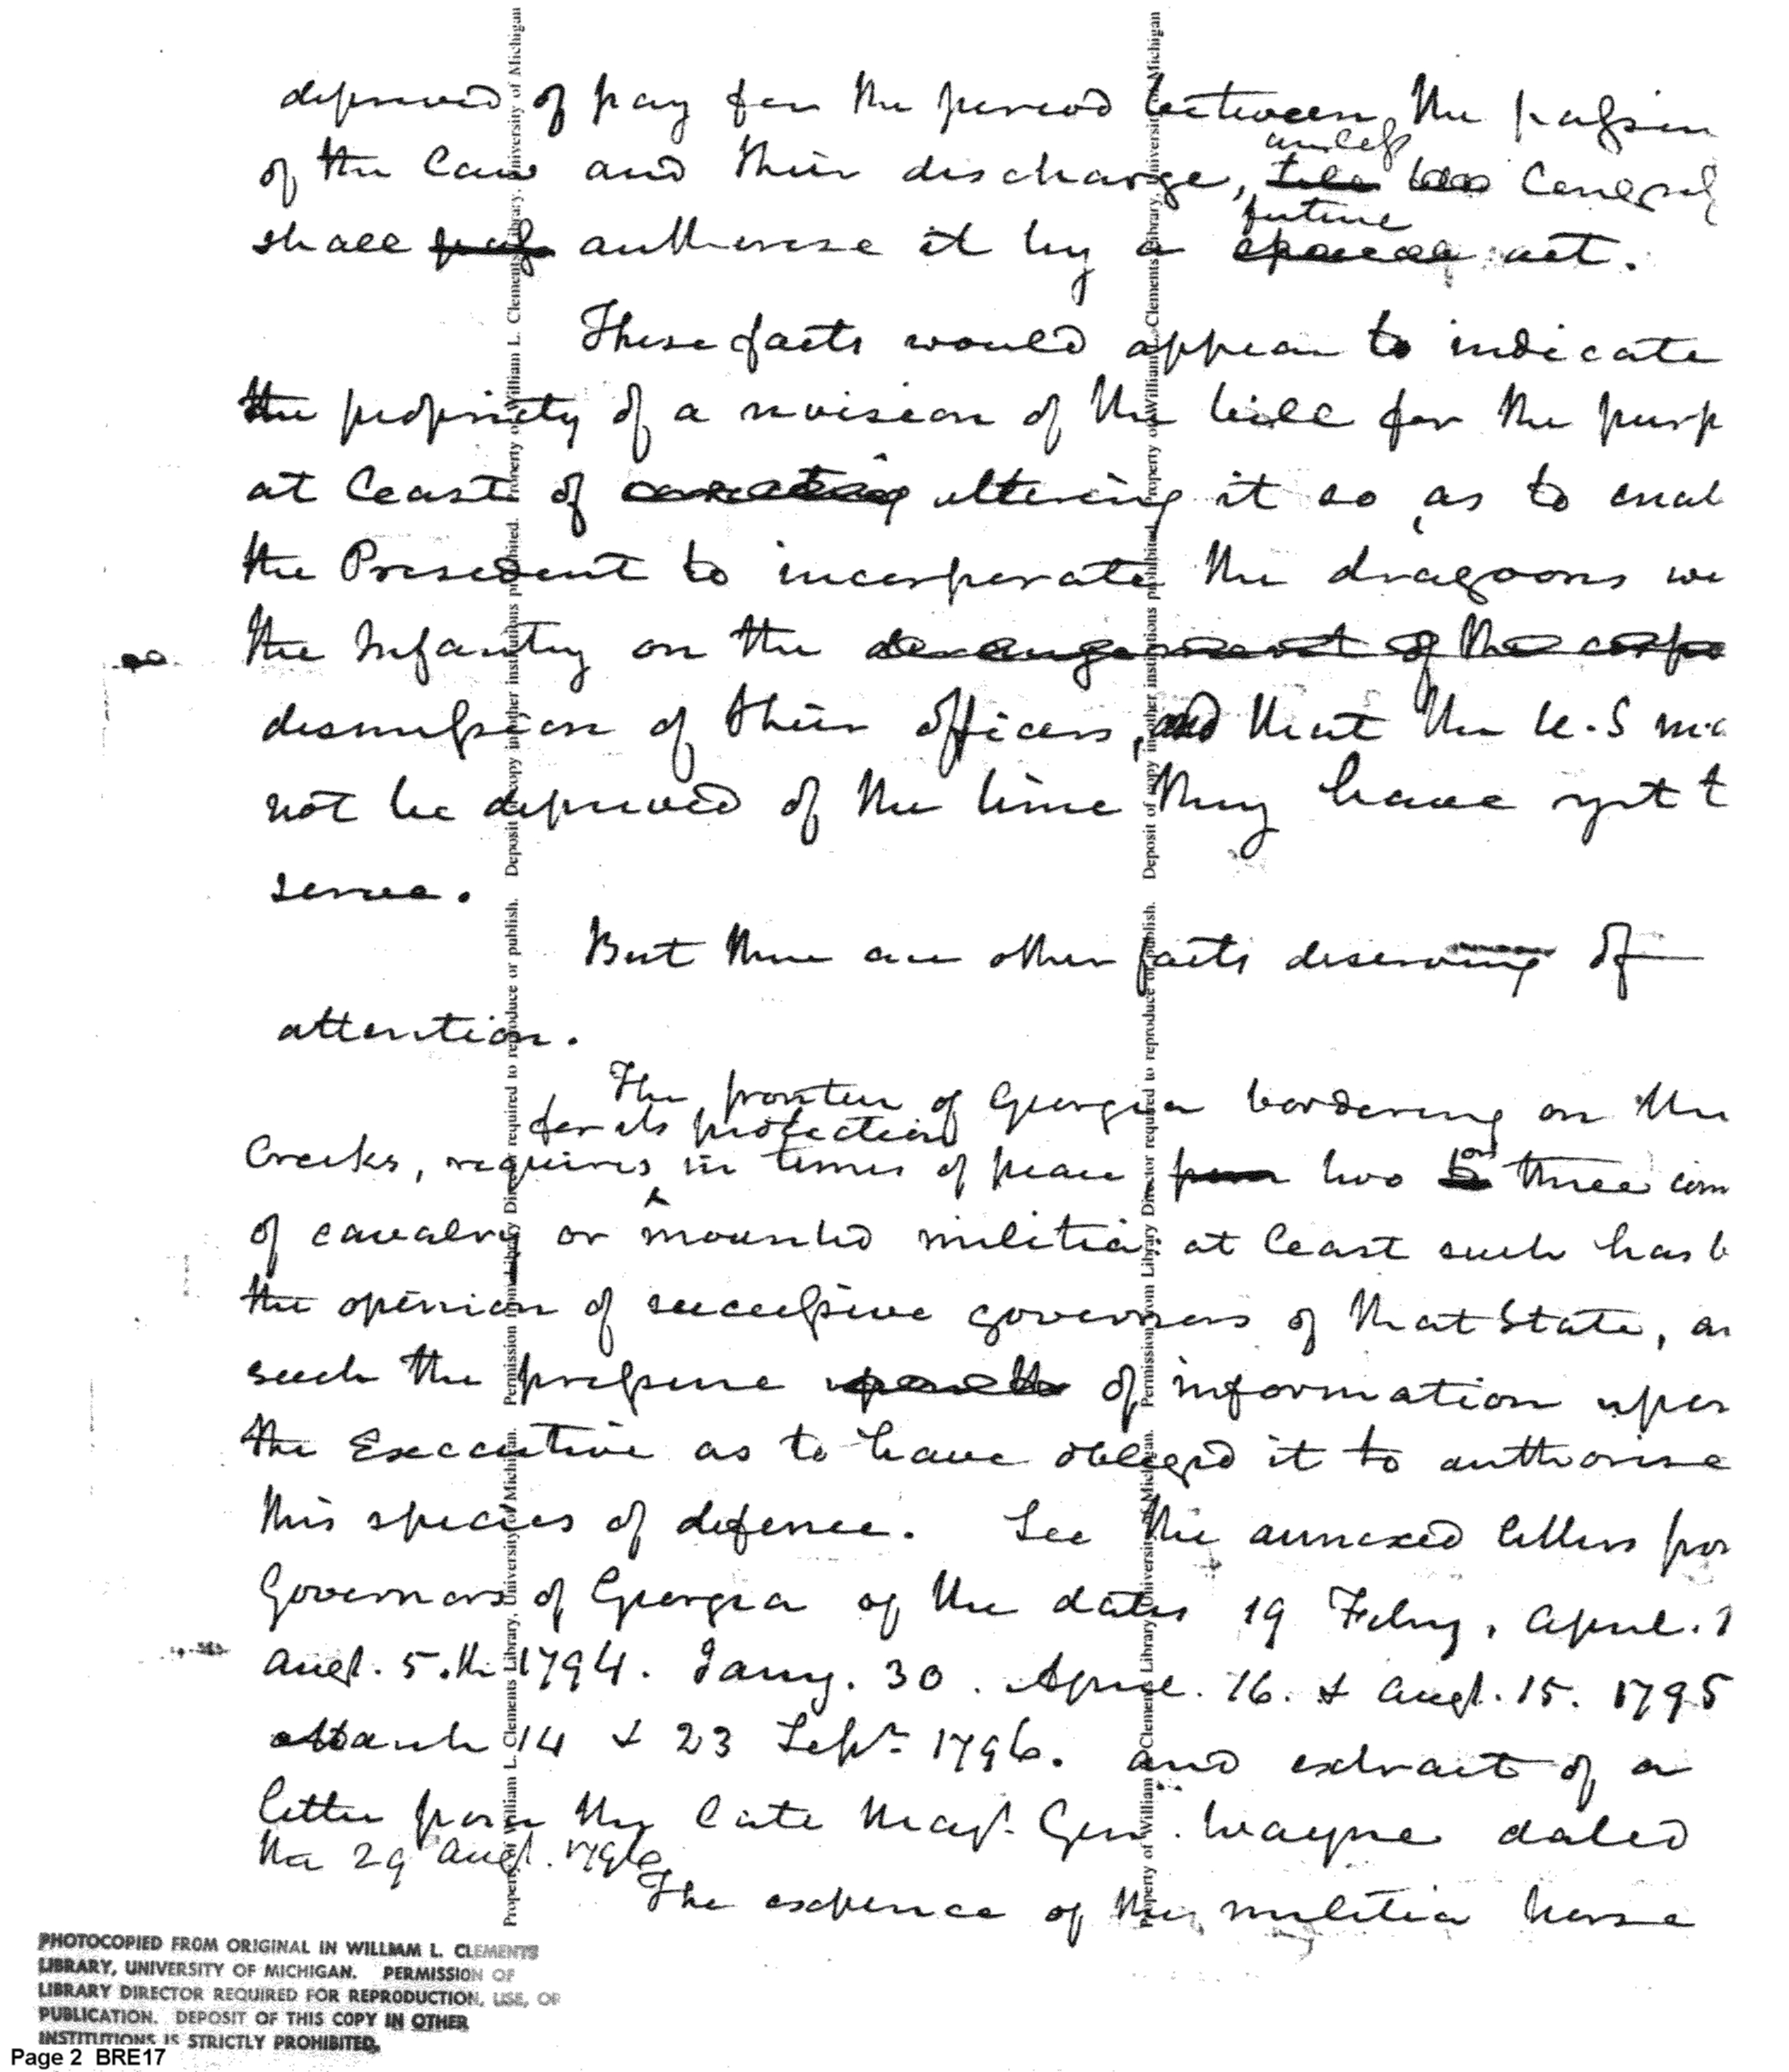 deprived of pay for the period between the passin
unless
of the Law and their discharge, Congress
future
shall pass authorise it by a special act.
These facts would appear to indicate
the propriety of a revision of the bill for the purp
at least of altering it so, as to enab
the President to incorporate the dragoons wi
the Infantry on the derangement of the corps
dismission of their officers, and that the U.S ma
not be deprived of the time they have yet t
serve.
But there are other facts deserving of
attention.
The frontier of Georgia bordering on the
for its protection
Creeks, requires in times of peace from two or three com
of cavalry or mounted militia; at least such has b
the opinion of successive governors of that State, an
such the pressure of information upon
the Executive as to have obliged it to authorise
this species of defence. See the annexed letters from
Governors of Georgia of the dates 19 Feby, April. 1
Augt. 5.th 1794. Jany. 30. April. 16. & Augt. 15. 1795
March 14 & 23 Sepr. 1796. and extract of a
letter from the late Majr. Gen. Wayne dated
the 29 Augt. 1796
The expence of this militia horse
Property of William L. Clements Library, University of Michigan. Permission from Library Director required to reproduce or publish. Deposit of copy in other institutions prohibited. Property of William L. Clements Library, University of Michigan
Property of William L. Clements Library, University of Michigan. Permission from Library Director required to reproduce or publish. Deposit of copy in other institutions prohibited. Property of William L. Clements Library, University of Michigan
PHOTOCOPIED FROM ORIGINAL IN WILLIAM L. CLEMENTS
LIBRARY, UNIVERSITY OF MICHIGAN. PERMISSION OF
LIBRARY DIRECTOR REQUIRED FOR REPRODUCTION, USE, OR
PUBLICATION. DEPOSIT OF THIS COPY IN OTHER
INSTITUTIONS IS STRICTLY PROHIBITED.
Page 2 BRE17